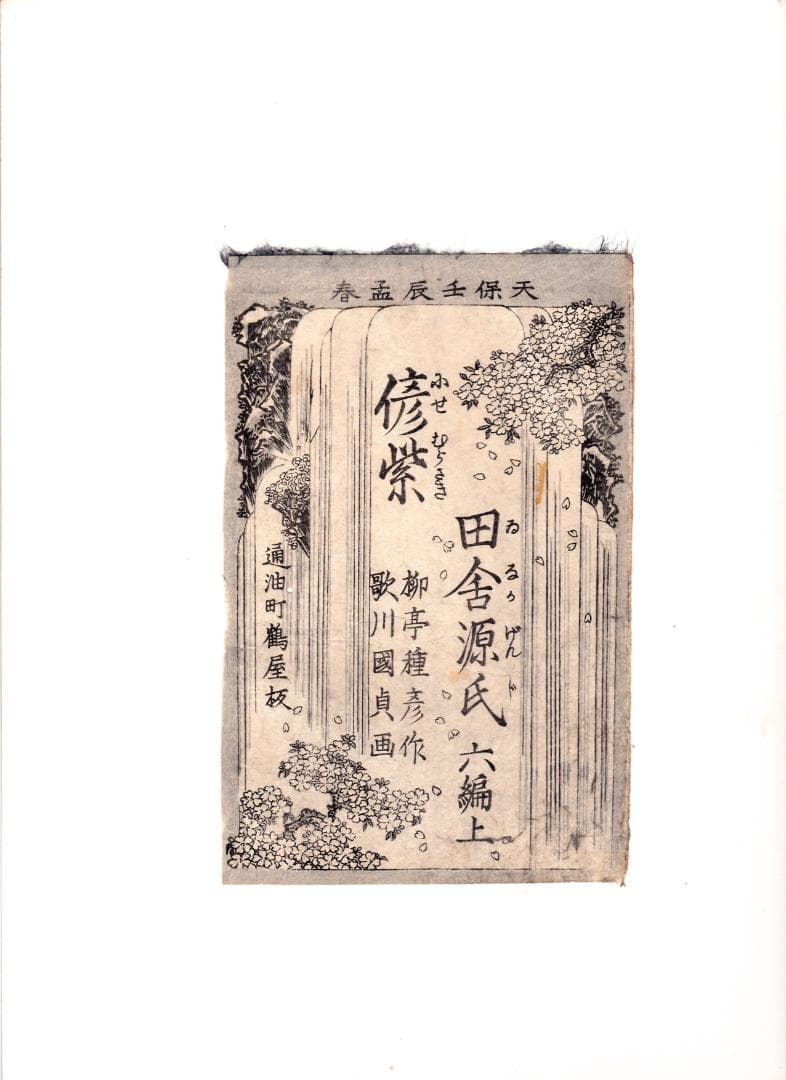 天保壬辰孟春
偐紫
にせ むらさき
田舎源氏 六編上
ゐるかげんじ
柳亭種彦作
歌川國貞画
通油町鶴屋板